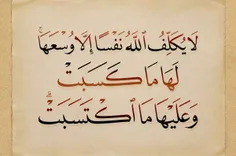 لَا يُكَلِّفُ اللَّهُ نَفْسًا إِلَّا وُسْعَهَا
لَهَا مَا كَسَبَتْ
وَعَلَيْهَا مَا اكْتَسَبَتْ